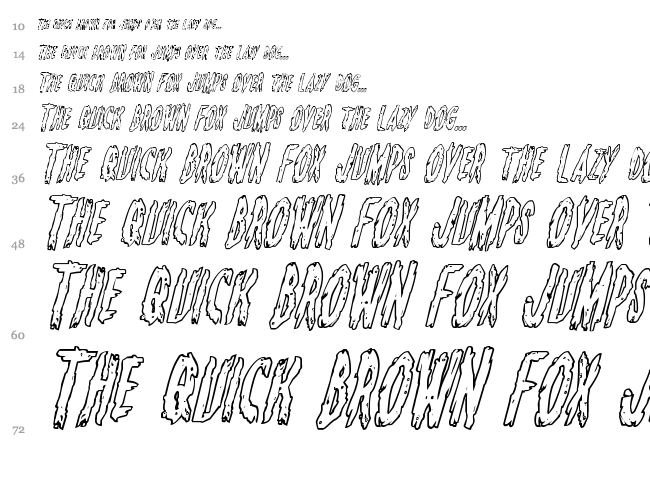 10 THE QUICK BROWN FOX JUMPS OVER THE LAZY DOG...
14 THE QUICK BROWN FOX JUMPS OVER THE LAZY DOG...
18 THE QUICK BROWN FOX JUMPS OVER THE LAZY DOG...
24 THE QUICK BROWN FOX JUMPS OVER THE LAZY DOG...
36 THE QUICK BROWN FOX JUMPS OVER THE LAZY DO
48 THE QUICK BROWN FOX JUMPS OVER
60 THE QUICK BROWN FOX JUMPS
72 THE QUICK BROWN FOX J